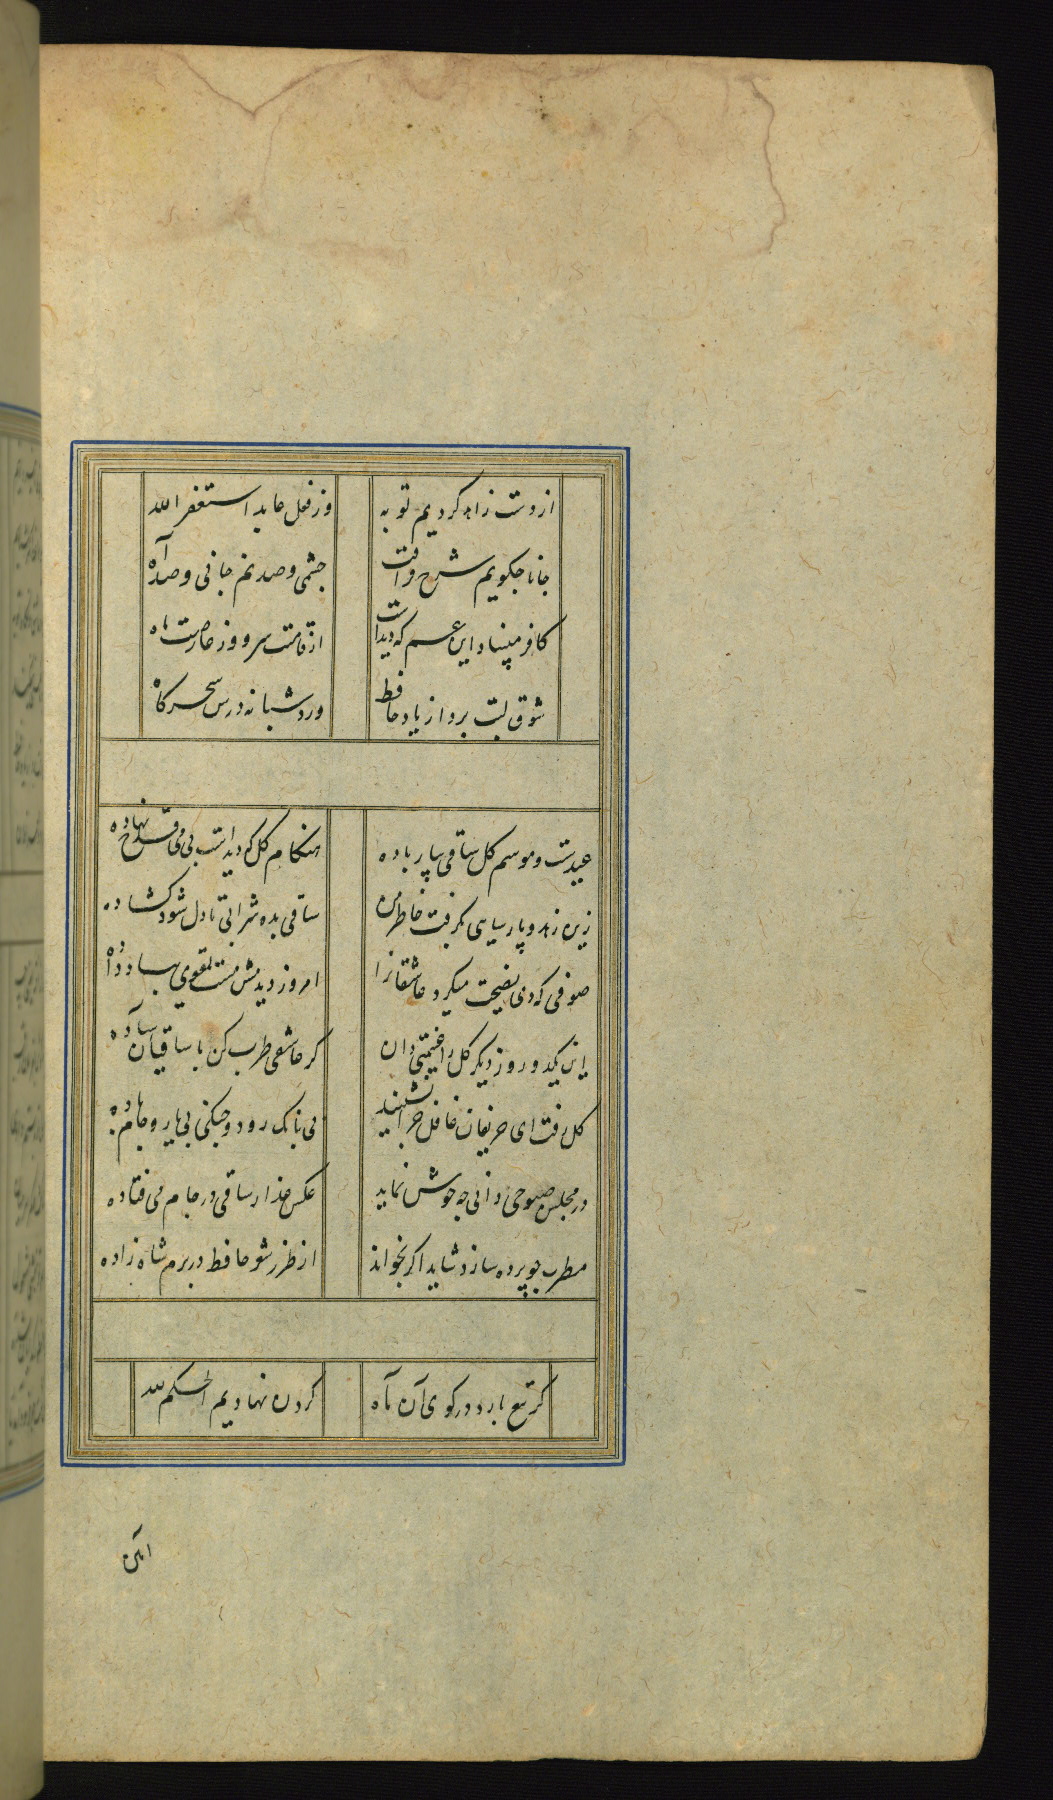 از دست زاهد کردیم توبه وز فعل عابد استغفر الله
جانا چکویم شرح فراقت چشمی و صد نم جانی و صد آه
کافر مبیناد این غم که دیدست از قامتت سرو وز عارضت ماه
شوق لبت برد از یاد حافظ ورد شبانه درس سحرکاه
عیدست و موسم کل ساقی بیار باده هنکام کل که دیدست بی می قدح نهاده
زین زهد و پارسایی بکرفت خاطر من ساقی بده شرابی تا دل شود کشاده
صوفی که دی نصیحت میکرد عاشقانرا امروز دیدمش مست تقوی بباد داده
این یکدو روز دیکر کل را غنیمتی دان کر عاشقی طرب کن با ساقیان ساده
کل رفت ای حریفان غافل چرا نشینید بی بانک رود و چنکی بی یار و جام باده
در مجلس صبوحی دانی چه خوش نماید عکس عذار ساقی در جام می فتاده
مطرب چو پرده سازد شاید اکر بخواند از طرز شعر حافظ در بزم شاه زاده
کر تیغ بارد در کوی آن ماه کردن نهادیم الحکم لله
آیین